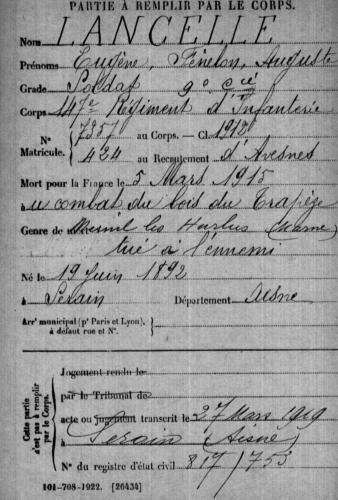 PARTIE À REMPLIR PAR LE CORPS.
Nom LANCELLE
Prénoms Eugène, Fénelon, Auguste
Grade Soldat 9e Cie
Corps 147e Régiment d'Infanterie
N° 7357 au Corps. — Cl. 1912
Matricule. 424 au Recrutement d'Avesnes
Mort pour la France le 5 Mars 1915
à u combat du bois du Trapèze
Genre de Mesnil les Hurlus (Marne)
tué à l'ennemi
Né le 19 Juin 1892
à Serain Département Aisne
Arrt municipal (pr Paris et Lyon),
à défaut rue et N°.
Cette partie n'est pas à remplir par le Corps.
Jugement rendu le
par le Tribunal de
acte ou jugement transcrit le 27 Mars 1919
à Serain (Aisne)
N° du registre d'état civil 817/753
101-708-1922. [26434]